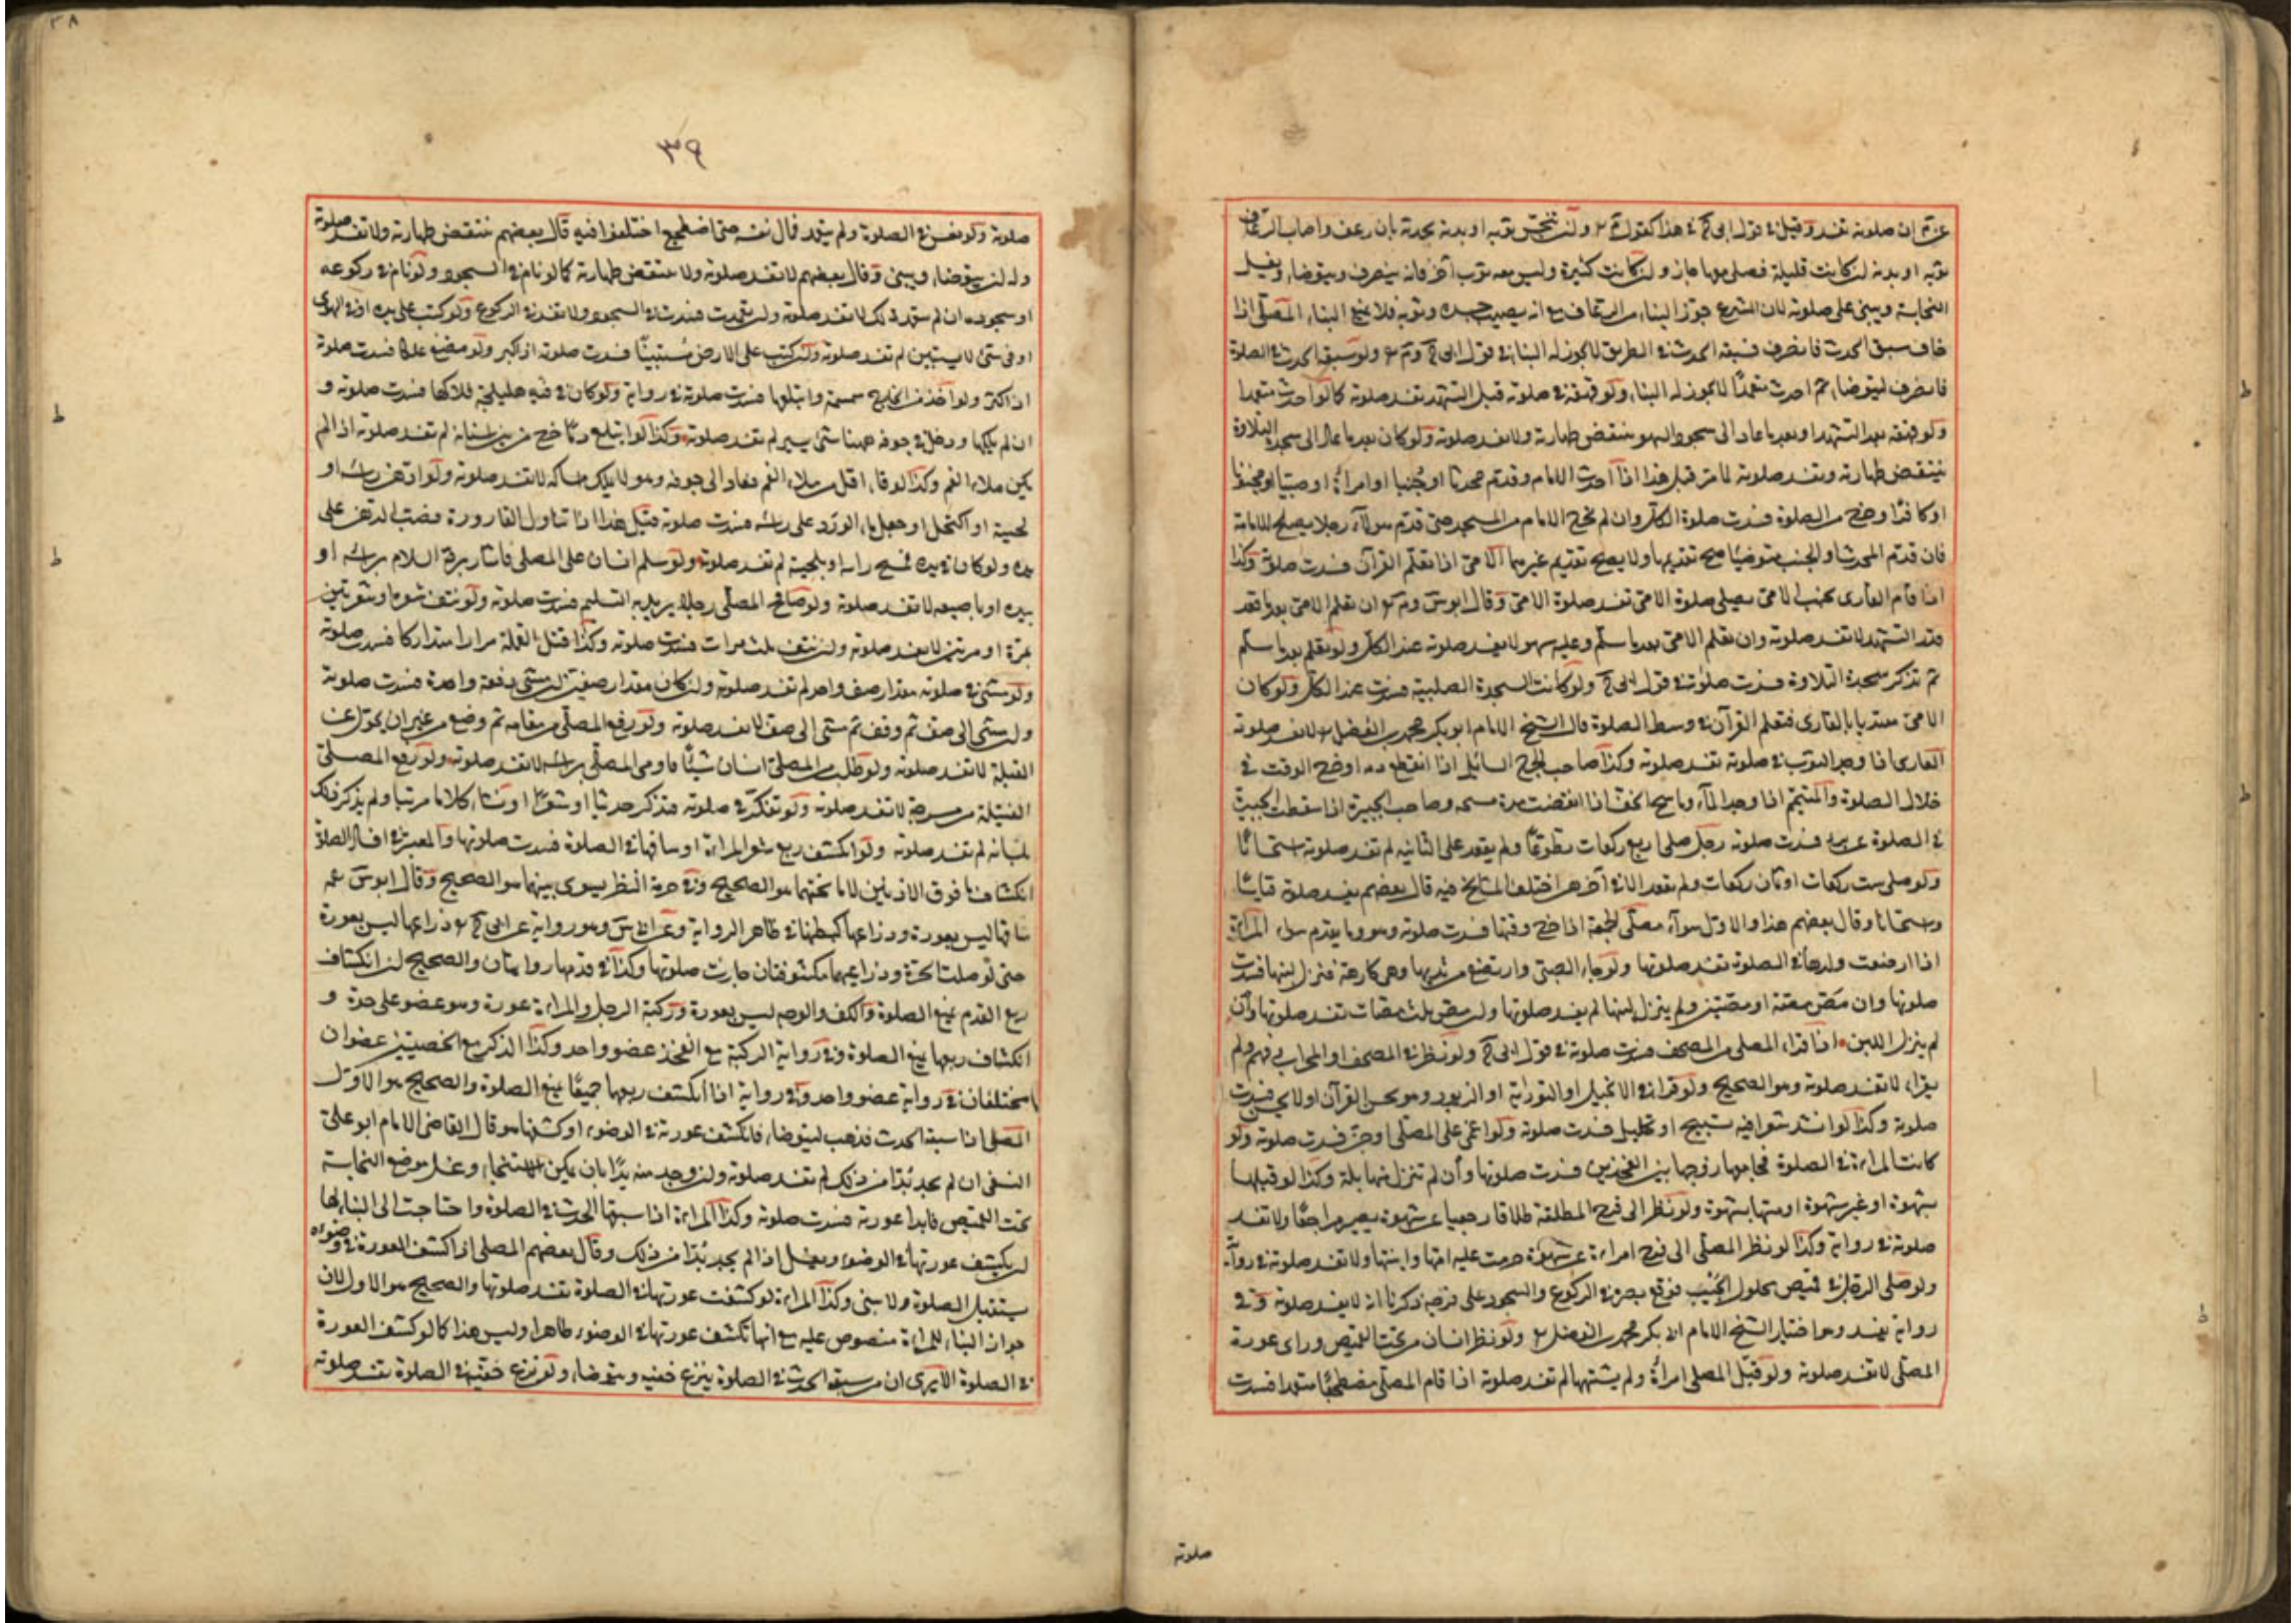 ثوبه او بدنه ان كانت قليلة فصلى معها جاز وان كانت كثيرة وليس معه ثوب آخر فانه ينصرف ويتوضاء ويغسل
النجاسة ويبنى على صلوته لان الشرع جوّز البناء
خاف سبق الحدث فانصرف فسبقه الحدث فى الطريق لا يجوز له البناء فى قول
فانصرف ليتوضاء ثم احدث متعمدًا لا يجوز له البناء ولو قهقه فى صلوته قبل التشهد تفسد صلوته كما لو احدث متعمدا
ولو قهقه بعد التشهد او بعد ما عاد الى سجود السهو ينتقض طهارته ولا تفسد صلوته ولو كان بعد ما عاد الى سجدة التلاوة
ينتقض طهارته وتفسد صلوته لما مر قبل هذا اذا احدث الامام وقدّم محدثا او جنبا او امرأة او صبيّا او مجنونا
او كافرا وخرج من الصلوة فسدت صلوة الكل وان لم يخرج الامام من المسجد حتى قدّم رجلا يصلح للامامة
الامىّ اذا تعلّم القرآن فسدت صلوته وكذا
قدر التشهد لا تفسد صلوته وان تعلم الامىّ بعد ما سلّم وعليه سهو لا يفسد صلوته عند الكل ولو تعلم بعد ما سلّم
ثم تذكر سجدة التلاوة فسدت صلوته فى قول ولو كانت السجدة الصلبية فسدت عند الكل ولو كان
الامىّ مقتديا بالقارى فتعلم القرآن فى وسط الصلوة قال الشيخ الامام ابو بكر محمد بن الفضل لا تفسد صلوته
العارى اذا وجد الثوب فى صلوته تفسد صلوته وكذا صاحب الجرح السائل اذا انقطع دمه او خرج الوقت فى
خلال الصلوة والمتيمم اذا وجد الماء وماسح الخف اذا انقضت مدة مسحه وصاحب الجبيرة اذا سقطت الجبيرة
فى الصلوة عن برء فسدت صلوته رجل صلى اربع ركعات تطوعًا ولم يقعد على الثانية لم تفسد صلوته استحسانًا
ولو صلى ست ركعات او ثمان ركعات ولم يقعد الا فى آخرهن اختلف المشايخ فيه قال بعضهم يفسد صلوته قياسًا
واستحسانا وقال بعضهم هذا والاول سواء مصلّى الجمعة اذا خرج وقتها فسدت صلوته
اذا ارضعت ولدها فى الصلوة تفسد صلوتها ولو جاء الصبىّ وارتضع من ثديها وهى كارهة فنزل لبنها فسدت
صلوتها وان مصّ مصّة او مصّتين ولم ينزل لبنها لم يفسد صلوتها وان مصّ ثلث مصّات تفسد صلوتها وان
لم ينزل اللبن اذا قراء المصلى من المصحف فسدت صلوته فى قول ولو نظر فى المصحف او المحراب فى فهم ولم
يقراء لا تفسد صلوته وهو الصحيح ولو قرأ فى الانجيل او التورية او الزبور وهو يحسن القرآن او لا يحسن فسدت
صلوته وكذا لو انشد شعرا فيه تسبيح او تهليل فسدت صلوته ولو اغمى على المصلى او جنّ فسدت صلوته ولو
كانت المراءة فى الصلوة فجامعها زوجها بين الفخذين فسدت صلوتها وان لم تنزل منها بلة وكذا لو قبلها
بشهوة او غير شهوة او مسّها بشهوة ولو نظر الى فرج المطلقة طلاقا رجعيا عن شهوة يصير مراجعًا ولا تفسد
صلوته فى رواية وكذا لو نظر المصلّى الى فرج امراءة عن شهوة حرمت عليه امّها وابنتها ولا تفسد صلوته فى رواية
ولو صلى الرجل فى قميص محلول الجيب فوقع بصره فى الركوع والسجود على فرجه ذكرنا انه لا يفسد صلوته وفى
رواية يفسد وهو اختيار الشيخ الامام ابى بكر محمد بن الفضل ولو نظر انسان من تحت القميص وراى عورة
المصلّى لا تفسد صلوته ولو قبّل المصلى امرأة ولم يشتهها لم تفسد صلوته اذا نام المصلّى مضطجعًا متعمدا فسدت
صلوته
٣٩
٣٨
صلوته ولو نعس فى الصلوة ولم يتعمد فمال نفسه حتى اضطجع اختلفوا فيه قال بعضهم ينتقض طهارته ولا تفسد صلوته
وله ان يتوضاء ويبنى وقال بعضهم لا تفسد صلوته ولا تنتقض طهارته كما لو نام فى السجود ولو نام فى ركوعه
او سجوده ان لم يتعمد ذلك لا تفسد صلوته وان تعمدت فسدت فى السجود ولا تفسد فى الركوع ولو كتب على يده او فى الهوى
او فى شئ لا يستبين لم تفسد صلوته وان كتب على الارض مستبينًا فسدت صلوته ولو مضغ علكا فسدت صلوته
اذا كثر ولو اخذ من الخارج سمسمة وابتلعها فسدت صلوته فى رواية ولو كان فى فيه هليلجة فلاكها فسدت صلوته و
ان لم يلكها ودخل فى جوفه منها شئ يسير لم تفسد صلوته وكذا لو ابتلع دمًا خرج من بين اسنانه لم تفسد صلوته اذا لم
يكن ملاء الفم وكذا لو قاء اقل من ملاء الفم فعاد الى جوفه وهو لا يملك امساكه لا تفسد صلوته ولو ادّهن راسه او
لحيته او اكتحل او جعل ماء الورد على راسه فسدت صلوته قيل هذا اذا تناول القارورة فصبّ الدهن على
يده ولو كان فى يده فمسح راسه او بلحيته لم تفسد صلوته ولو سلم انسان على المصلى فاشار بردّ السلام براسه او
بيده او باصبعه لا تفسد صلوته ولو صافح المصلّى رجلا يريد به التسليم فسدت صلوته ولو نتف شعره او شعرتين
مرة او مرتين لا تفسد صلوته وان نتف ثلث مرات فسدت صلوته وكذا قتل القملة مرارا متداركا فسدت صلوته
ولو مشى فى صلوته مقدار صف واحد لم تفسد صلوته وان كان مقدار صفين ان مشى دفعة واحدة فسدت صلوته
وان مشى الى صف ثم وقف ثم مشى الى صف لا تفسد صلوته ولو رفع المصلّى من مقامه ثم وضع من غير ان يحوّل عن
القبلة لا تفسد صلوته ولو طلب من المصلّى انسان شيئًا فاومى المصلّى براسه لا تفسد صلوته ولو رفع المصلّى
الفتيلة من مسرجة لا تفسد صلوته ولو تفكّر فى صلوته فتذكر حديثا او شعرًا او انشاء كلاما مرتبا ولم يذكر ذلك
بلسانه لم تفسد صلوته ولو انكشف ربع شعر المراءة او ساقها فى الصلوة فسدت صلوتها والمعتبر فى افساد الصلوة
انكشاف ما فوق الاذنين لا ما تحتهما هو الصحيح وفى حرمة النظر يسوى بينهما هو الصحيح
ساقها ليس بعورة وذراعها كبطنها فى ظاهر الرواية
حتى لو صلت الحرّة وذراعيها مكشوفتان جازت صلوتها وكذا فى قدمها روايتان والصحيح ان انكشاف
ربع القدم يمنع الصلوة والكف والوجه ليس بعورة وركبة الرجل والمراءة عورة وهو عضو على حدة و
انكشاف ربعها يمنع الصلوة وفى رواية الركبة مع الفخذ عضو واحد وكذا الذكر مع الخصيتين عضوان
مختلفان وفى رواية عضو واحد وفى رواية اذا انكشف ربعهما جميعًا يمنع الصلوة والصحيح هو الاول
المصلى اذا سبقه الحدث فذهب ليتوضاء فانكشف عورته فى الوضوء او كشفها هو قال القاضى الامام ابو على
النسفى ان لم يجد بدّا من ذلك لم تفسد صلوته وان وجد منه بدّا بان يمكن الاستنجاء وغسل موضع النجاسة
تحت القميص فابدا عورته فسدت صلوته وكذا المراءة اذا سبقها الحدث فى الصلوة واحتاجت الى البناء لها
ان يكشف عورتها فى الوضوء ويغسل اذا لم يجد بدّا من ذلك وقال بعضهم المصلى اذا كشف العورة فى وضوئه
يستقبل الصلوة ولا يبنى وكذا المراءة لو كشفت عورتها فى الصلوة تفسد صلوتها والصحيح هو الاول لان
جواز البناء للمراءة منصوص عليه مع انها تكشف عورتها فى الوضوء ظاهرا وليس هذا كما لو كشف العورة
فى الصلوة الا يرى ان من سبقه الحدث فى الصلوة ينزع خفيه ويتوضاء ولو نزع خفيه فى الصلوة تفسد صلوته